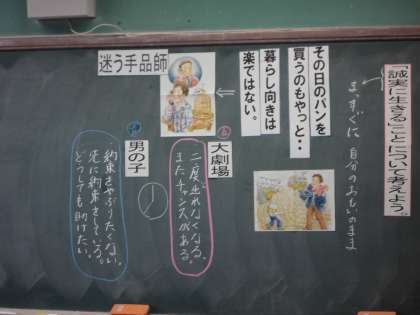 「誠実に生きる」ことについて考えよう。
まっすぐに、自分のおもいのまま
その日のパンを
買うのもやっと・・
暮らし向きは
楽ではない。
迷う手品師
大劇場
二度と来れなくなる。
またチャンスがある。
男の子
約束をやぶりたくない。
先に約束をしている。
どうしても助けたい。